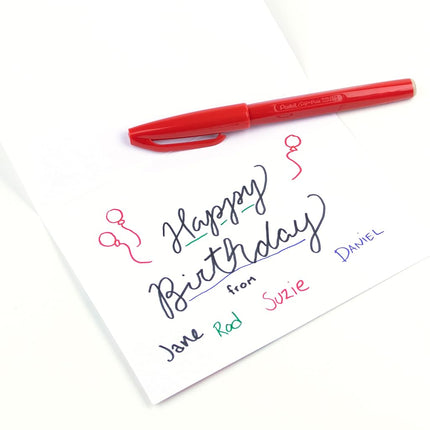 Pentel Sign Pen
Happy
Birthday
from
Jane Rod Suzie DANIEL